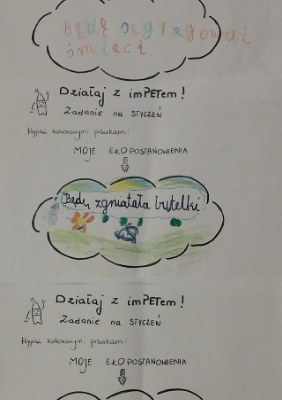 Będę segregować
śmieci
Działaj z imPETem!
Zadanie na STYCZEŃ
Wypisz kolorowymi pisakami:
MOJE EKOPOSTANOWIENIA
Będę zgniatała butelki
Działaj z imPETem!
Zadanie na STYCZEŃ
Wypisz kolorowymi pisakami:
MOJE EKOPOSTANOWIENIA